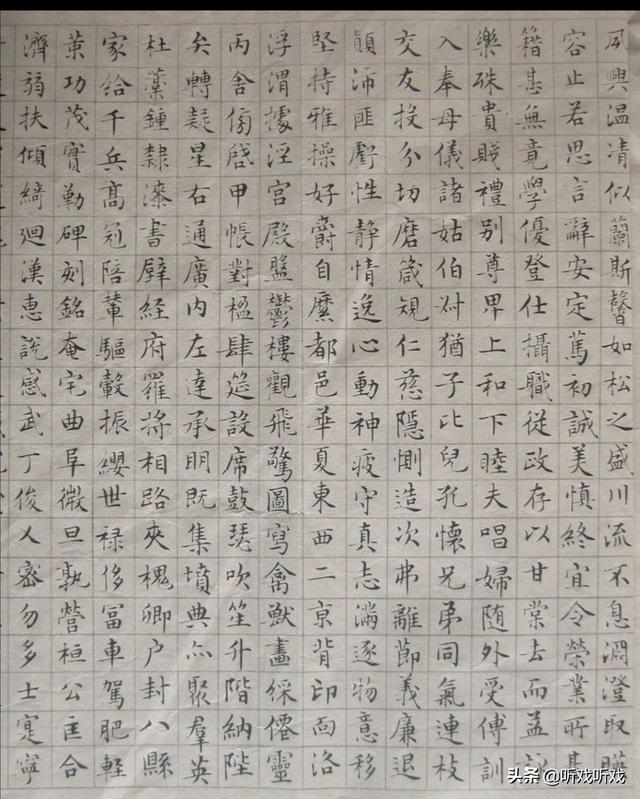 夙興温凊似蘭斯馨如松之盛川流不息淵澄取暎
容止若思言辭安定篤初誠美慎終宜令榮業所基
籍甚無竟學優登仕攝職從政存以甘棠去而益詠
樂殊貴賤禮別尊卑上和下睦夫唱婦随外受傅訓
入奉母儀諸姑伯叔猶子比兒孔懷兄弟同氣連枝
交友投分切磨箴規仁慈隱惻造次弗離節義廉退
顛沛匪虧性靜情逸心動神疲守真志滿逐物意移
堅持雅操好爵自縻都邑華夏東西二京背邙面洛
浮渭據涇宮殿盤鬱樓觀飛驚圖寫禽獸畫綵僊靈
丙舍傍啓甲帳對楹肆筵設席鼓瑟吹笙升階納陛
弁轉疑星右通廣內左達承明既集墳典亦聚羣英
杜藁鍾隸漆書壁經府羅將相路夾槐卿户封八縣
家給千兵高冠陪輦驅轂振纓世禄侈富車駕肥軽
策功茂實勒碑刻銘奄宅曲阜微旦孰營桓公匡合
濟弱扶傾綺迴漢惠說感武丁俊乂密勿多士寔寧
头条 @听戏听戏